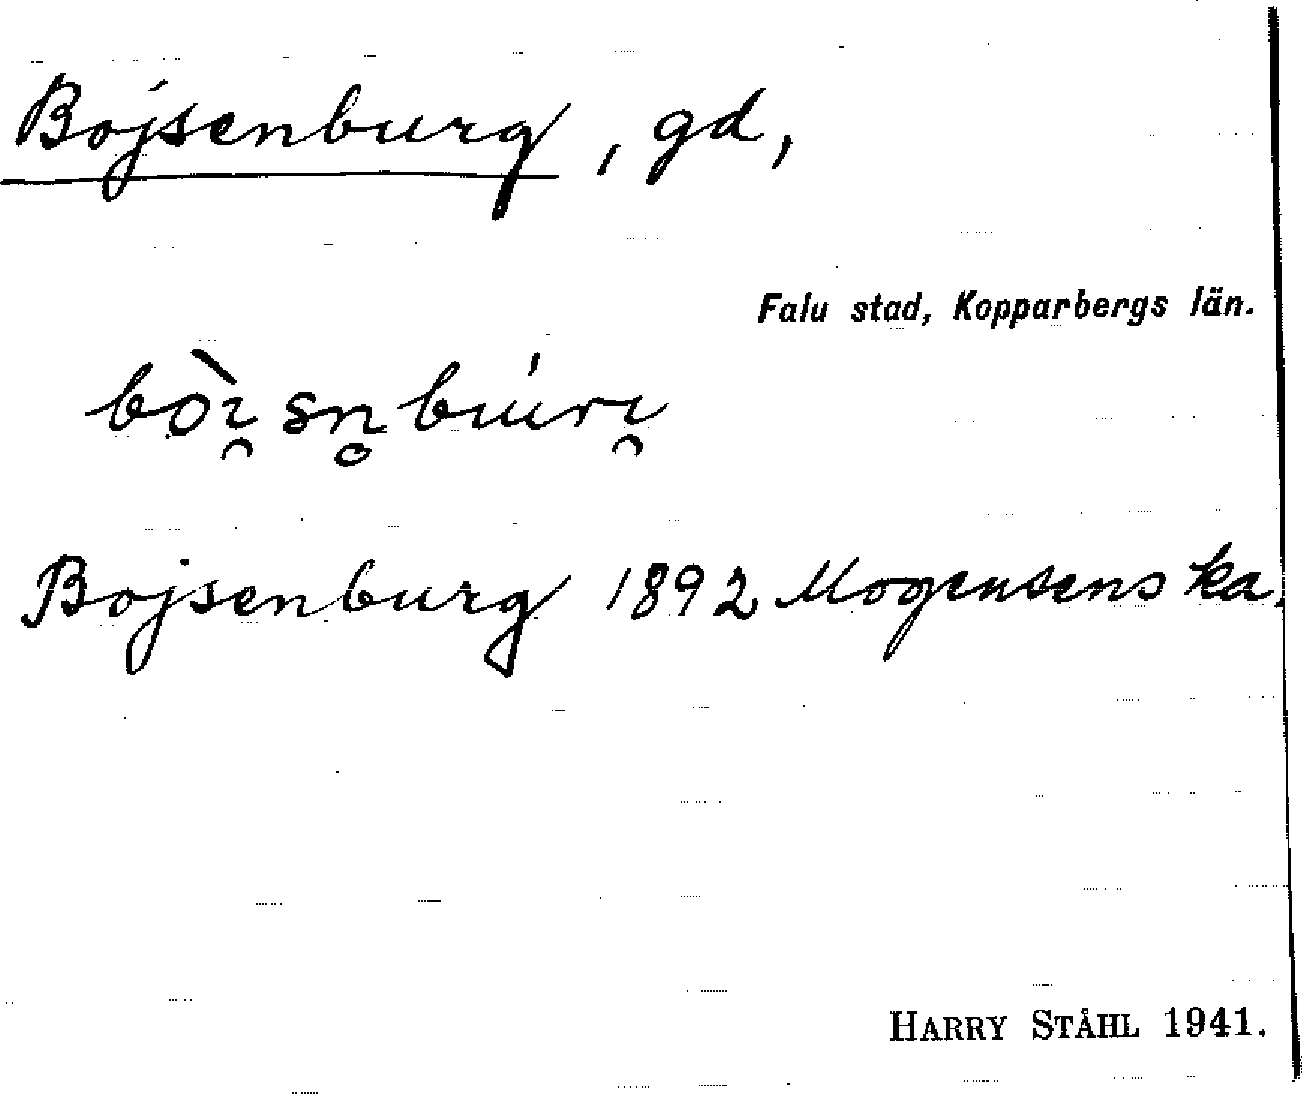 Bojsenburg, gd,
Falu stad, Kopparbergs län.
bòi̯ sn̥ búri̯
Bojsenburg 1892 Mogensens ka.
HARRY STÅHL 1941.